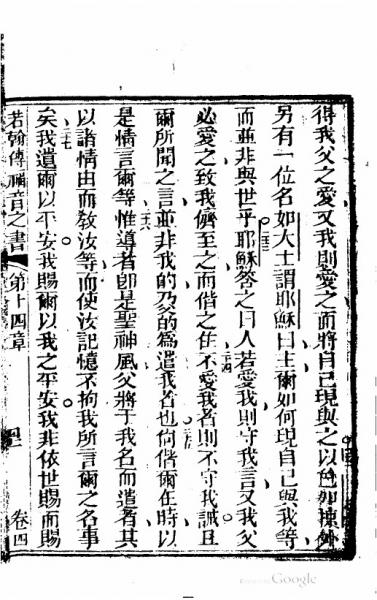 得我父之愛又我則愛之而將自己現與之以色加掠外
另有一位名如大士謂耶穌曰主爾如何現自己與我等
而並非與世乎二三耶穌答之曰人若愛我則守我言又我父
必愛之致我儕至之而偕之住二四不愛我者則不守我誡且
爾所聞之言並非我的乃父的為遣我者也二五尚偕爾在時以
是情言爾等二六惟導者即是聖神風父將于我名而遣者其
以諸情由而敎汝等而使汝記憶不拘我所言爾之各事
矣二七我遺爾以平安我賜爾以我之平安我非依世賜而賜
若翰傳福音之書 第十四章 卷四
Google